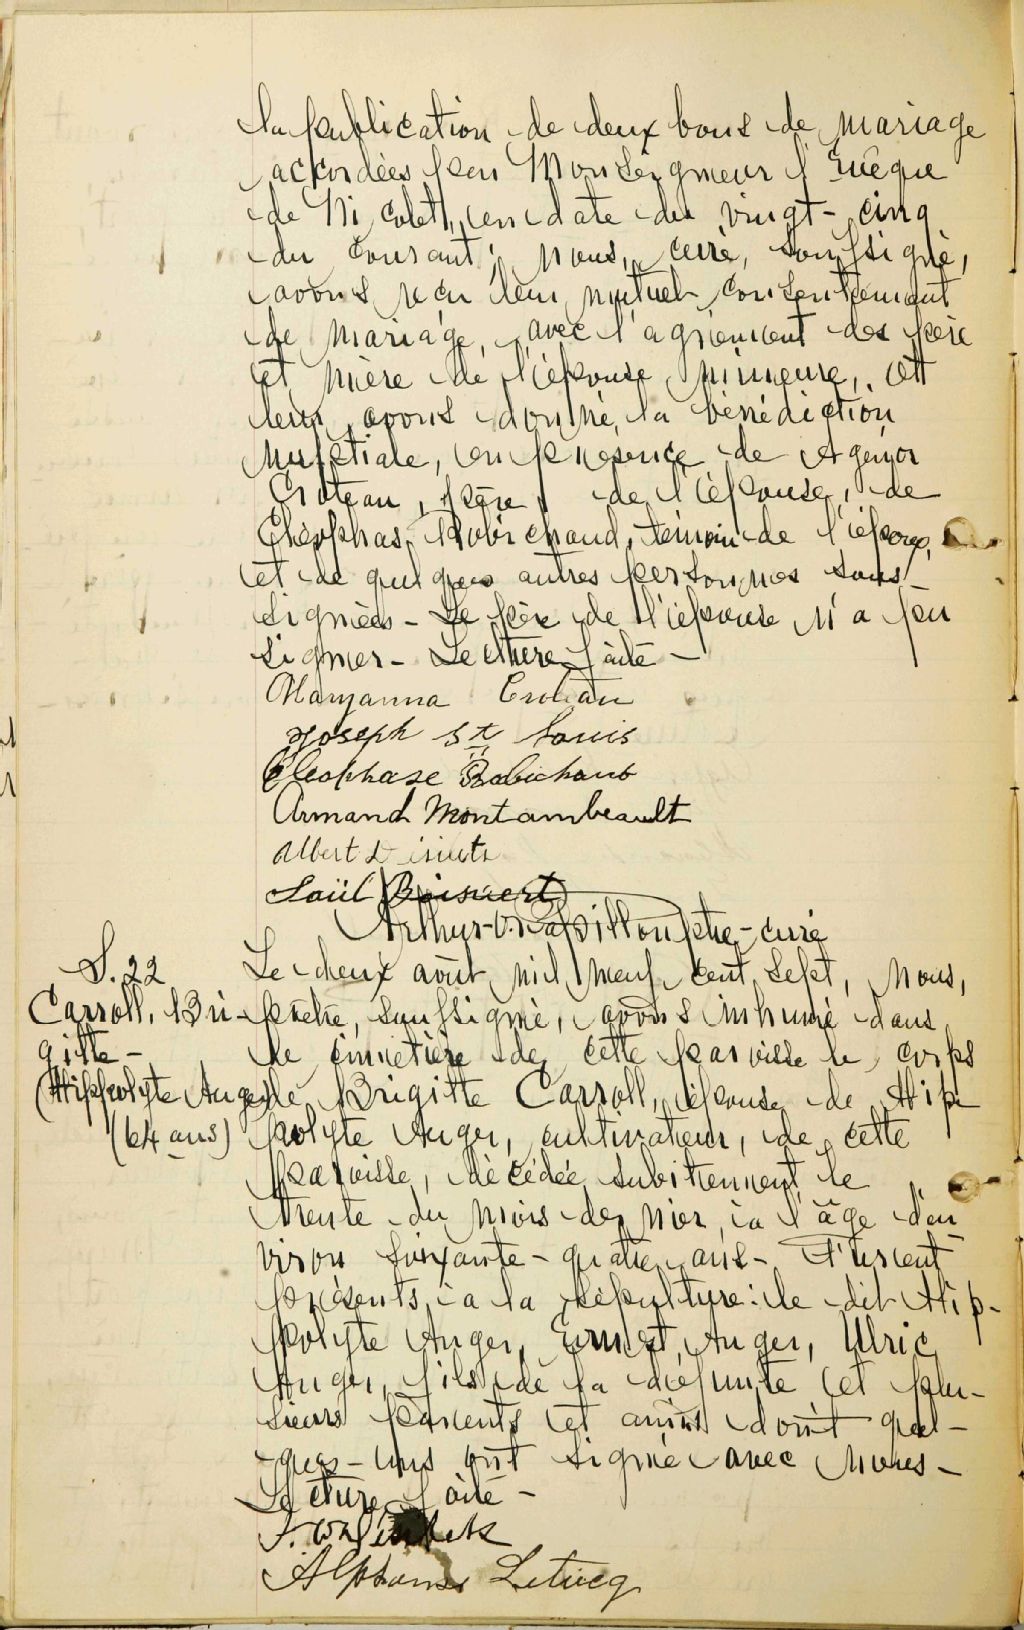 la publication de deux bans de mariage
accordées par Monseigneur l'Evêque
de Nicolet, en date du vingt-cinq
du courant; nous, curé, soussigné,
avons reçu leur mutuel consentement
de mariage, avec l'agrément des père
et mère de l'épouse mineure, et
leur avons donné la bénédiction
nuptiale, en présence de Agénor
Croteau, père de l'épouse, de
Cléophas Robichaud, témoin de l'époux,
et de quelques autres personnes sous-
signées - Le père de l'épouse n'a pu
signer - Lecture faite -
Maryanna Croteau
Joseph St Louis
Cléophase Robichaud
Armand Montambeault
Albert
Saül Boisvert
Arthur-O. Papillon ptre-curé
S. 22
Carroll, Bri-
gitte -
(Hippolyte Auger)
(64 ans)
Le deux août mil neuf cent sept, nous,
prêtre, soussigné, avons inhumé dans
le cimetière de cette paroisse le corps
de Brigitte Carroll, épouse de Hip-
polyte Auger, cultivateur, de cette
paroisse, décédée subitement le
trente du mois dernier à l'âge d'en-
viron soixante-quatre ans - Furent
présents à la sépulture: le dit Hip-
polyte Auger, Ernest Auger, Ulric
Auger, fils de la défunte et plu-
sieurs parents et amis dont quel-
ques-uns ont signé avec nous -
Lecture faite -
Alphonse Leticq